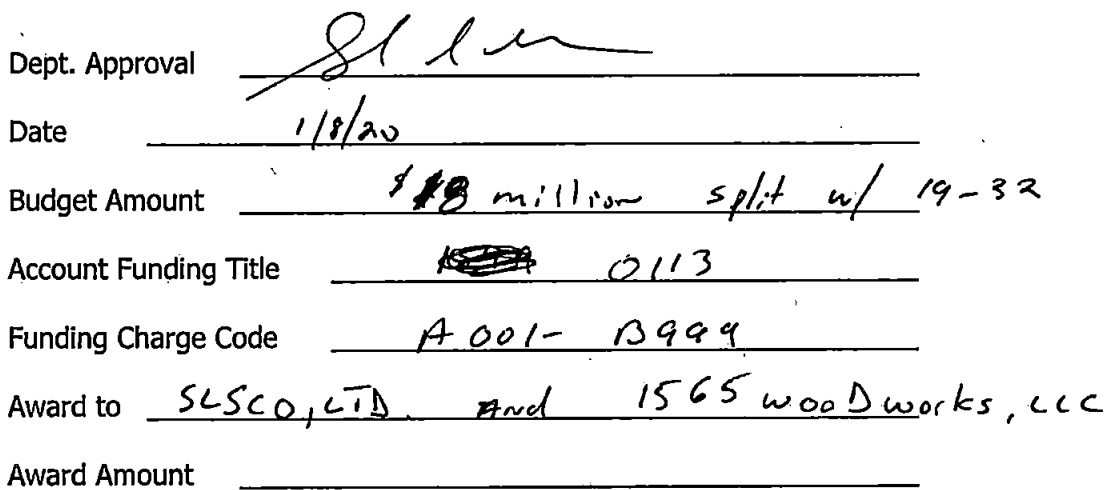 Dept. Approval
Date 1/8/20
Budget Amount million split w/ 19-32
Account Funding Title 0113
Funding Charge Code A001- B999
Award to SLSCO, LTD. And 1565 wooDworks, LLC
Award Amount